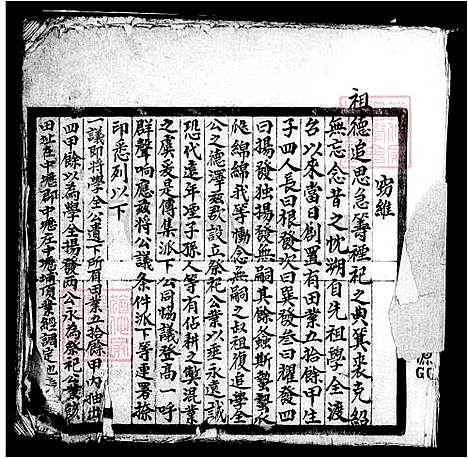 窃維
祖德追思急籌禋祀之典箕裘克紹
無忘念昔之忱溯自先祖學全渡
台以來當日創置有田業五拾餘甲生
子四人長曰根發次曰巽發叁曰耀發四
曰揚發独揚發無嗣其餘螽斯蟄蟄
瓞綿綿我等慟念無嗣之叔復追學全
公之德澤兹欲設立祭祀公業以垂永遠誠
恐代遠年堙子孫人等有佔耕之弊混業
之虞爰是傳集派下公同協議登高一呼
群聲响應兹將公議条件派下等連署捺
印悉列以下
一議即將學全公遺下所有田業五拾餘甲内抽出
四甲餘以為學全揚發两公永為祭祀公業
田址在中壢郡中壢庄中壢
源